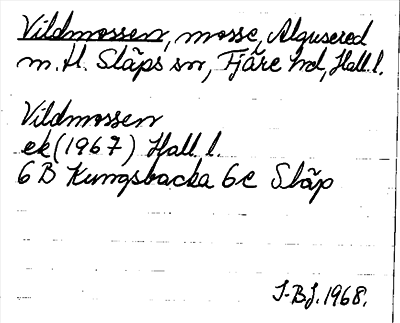 Vildmossen, mosse, Algusered
m. fl. Släps sn, Fjäre hd, Hall. l.
Vildmossen
ek (1967) Hall. l.
6 B Kungsbacka 6c Släp
I-B.J. 1968.